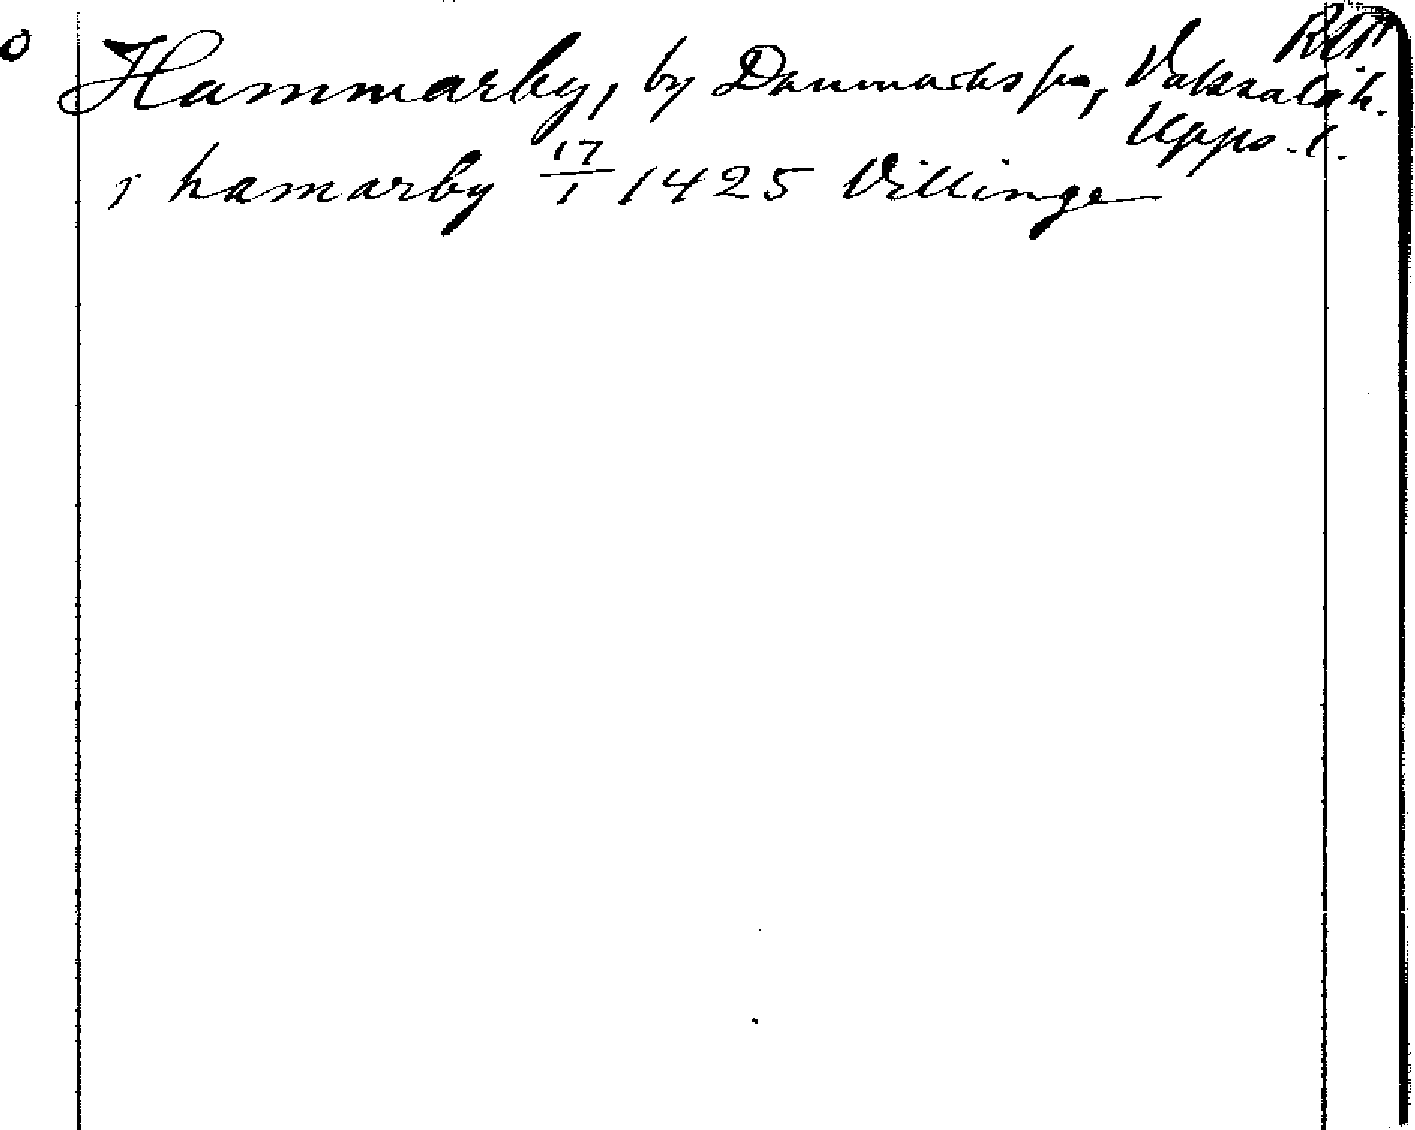 RAP
Hammarby, by Danmarks sn, Vaksala h.
Upps. l.
j hamarby 17/1 1425 Villinge